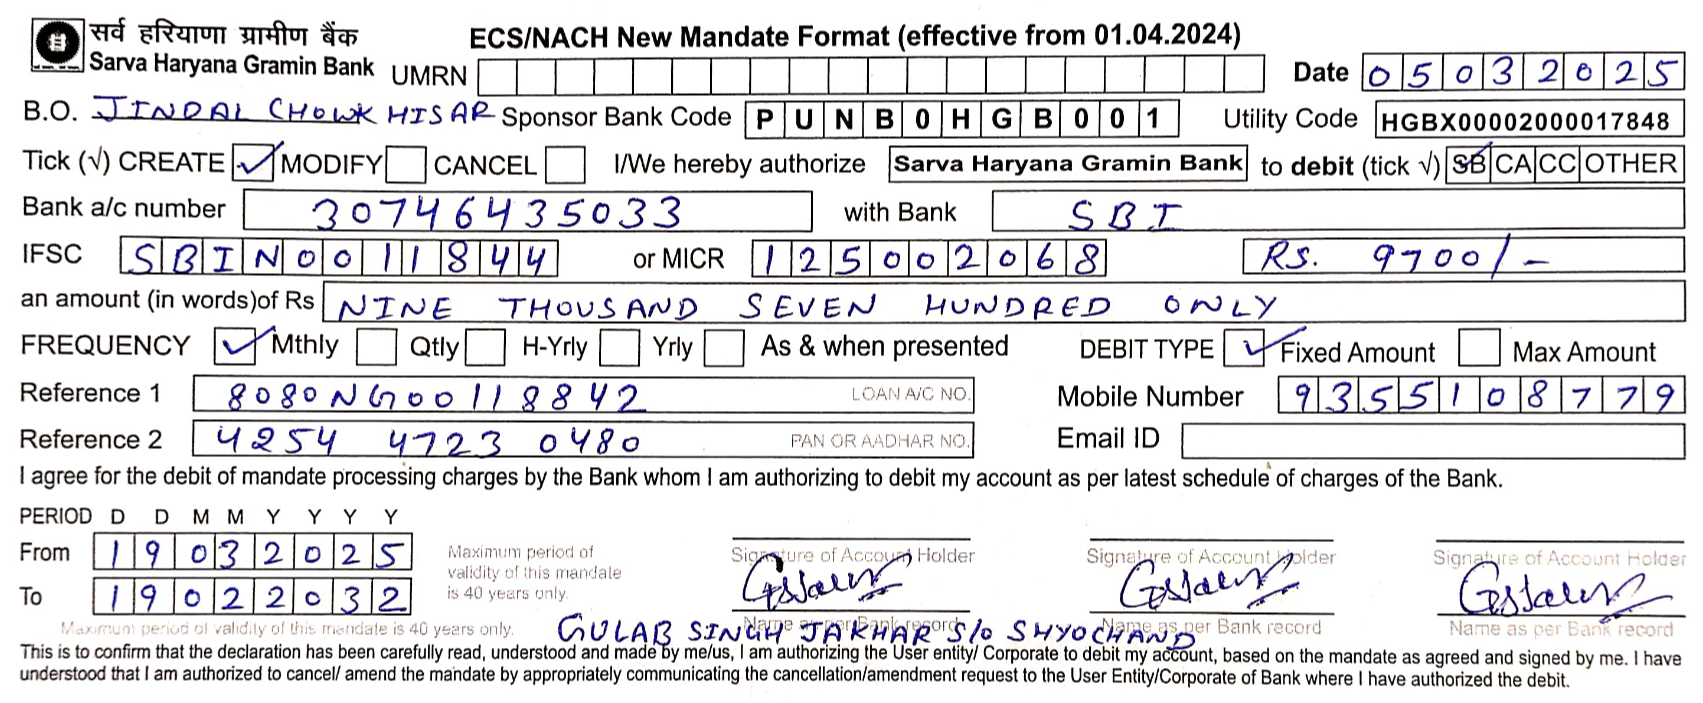 सर्व हरियाणा ग्रामीण बैंक
Sarva Haryana Gramin Bank
ECS/NACH New Mandate Format (effective from 01.04.2024)
UMRN Date 05032025
B.O. JINDAL CHOWK HISAR Sponsor Bank Code PUNB0HGB001 Utility Code HGBX00002000017848
Tick (√) CREATE ✓ MODIFY CANCEL I/We hereby authorize Sarva Haryana Gramin Bank to debit (tick √) SB CA CC OTHER
Bank a/c number 30746435033 with Bank SBI
IFSC SBIN0011844 or MICR 125002068 RS. 9700/-
an amount (in words)of Rs NINE THOUSAND SEVEN HUNDRED ONLY
FREQUENCY ✓ Mthly Qtly H-Yrly Yrly As & when presented DEBIT TYPE ✓ Fixed Amount Max Amount
Reference 1 8080NG00118842 LOAN A/C NO. Mobile Number 9355108779
Reference 2 4254 4723 0480 PAN OR AADHAR NO. Email ID
I agree for the debit of mandate processing charges by the Bank whom I am authorizing to debit my account as per latest schedule of charges of the Bank.
PERIOD D D M M Y Y Y Y
From 19032025
To 19022032
Maximum period of
validity of this mandate
is 40 years only.
Signature of Account Holder Signature of Account Holder Signature of Account Holder
Maximum period of validity of this mandate is 40 years only.
Name as per Bank record Name as per Bank record Name as per Bank record
GULAB SINGH JAKHAR S/o SHYOCHAND
This is to confirm that the declaration has been carefully read, understood and made by me/us, I am authorizing the User entity/ Corporate to debit my account, based on the mandate as agreed and signed by me. I have
understood that I am authorized to cancel/ amend the mandate by appropriately communicating the cancellation/amendment request to the User Entity/Corporate of Bank where I have authorized the debit.